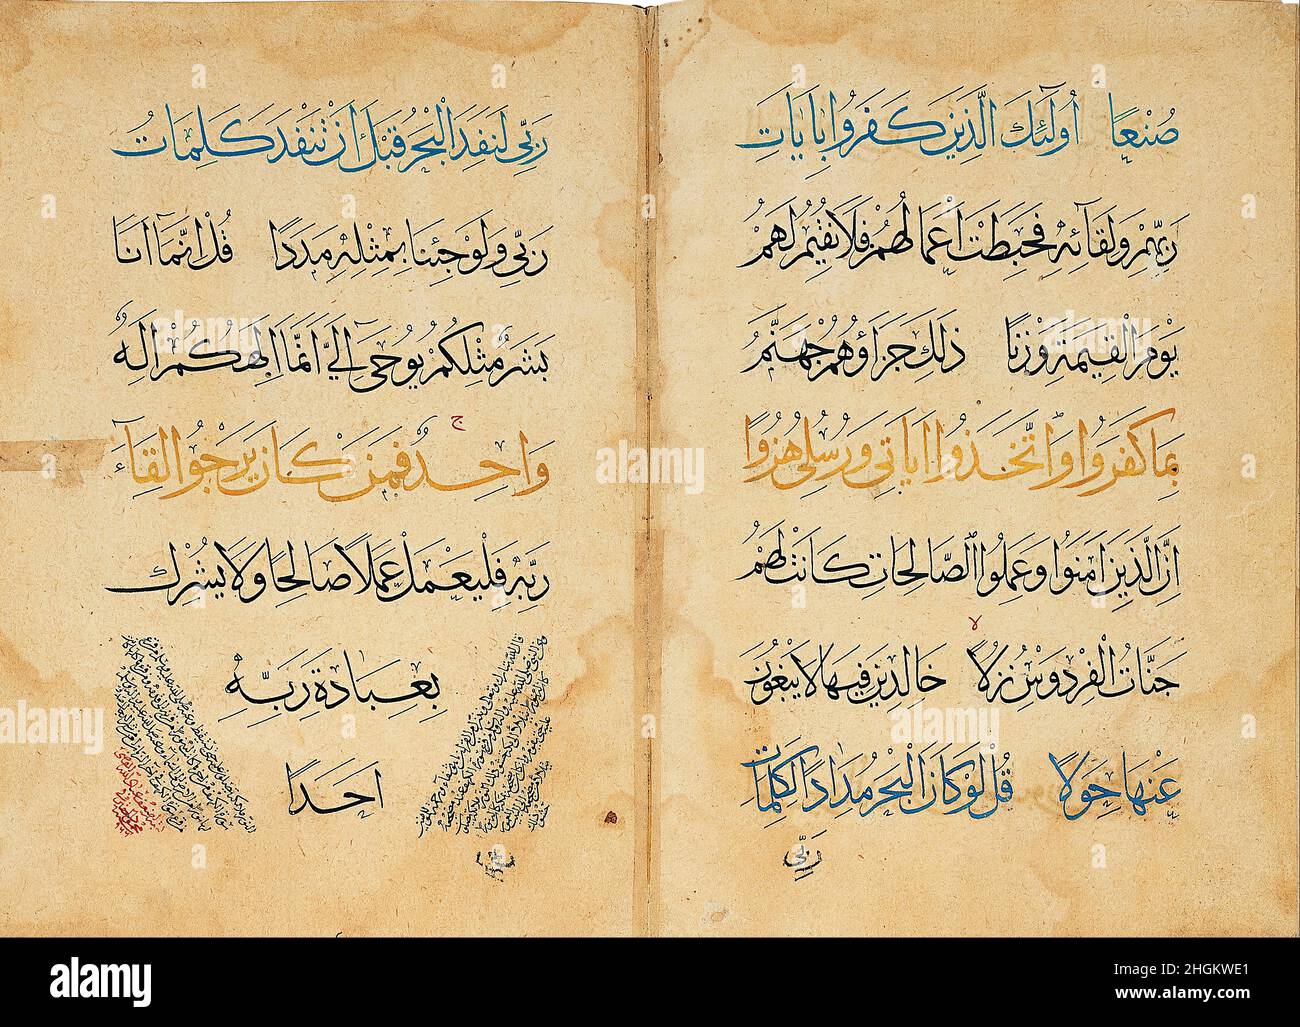 صُنْعًا أُولَٰئِكَ الَّذِينَ كَفَرُوا بِاٰيَاتِ
رَبِّهِمْ وَلِقَائِهِ فَحَبِطَتْ أَعْمَالُهُمْ فَلَا نُقِيمُ لَهُمْ
يَوْمَ الْقِيٰمَةِ وَزْنًا ذَٰلِكَ جَزَاؤُهُمْ جَهَنَّمُ
بِمَا كَفَرُوا وَاتَّخَذُوا اٰيَاتِي وَرُسُلِي هُزُوًا
اِنَّ الَّذِينَ اٰمَنُوا وَعَمِلُوا الصَّالِحَاتِ كَانَتْ لَهُمْ
جَنَّاتُ الْفِرْدَوْسِ نُزُلًا خَالِدِينَ فِيهَا لَا يَبْغُونَ
عَنْهَا حِوَلًا قُلْ لَوْ كَانَ الْبَحْرُ مِدَادًا لِكَلِمَاتِ
رَبِّي
رَبِّي لَنَفِدَ الْبَحْرُ قَبْلَ اَنْ تَنْفَدَ كَلِمَاتُ
رَبِّي وَلَوْ جِئْنَا بِمِثْلِهِ مَدَدًا قُلْ اِنَّمَا اَنَا
بَشَرٌ مِثْلُكُمْ يُوحَى اِلَيَّ اَنَّمَا اِلٰهُكُمْ اِلٰهٌ
ج
وَاحِدٌ فَمَنْ كَانَ يَرْجُوا لِقَاءَ
رَبِّهِ فَلْيَعْمَلْ عَمَلًا صَالِحًا وَلَا يُشْرِكْ
بِعِبَادَةِ رَبِّهِ
اَحَدًا
alamy
Image ID: 2HGKWE1
www.alamy.com